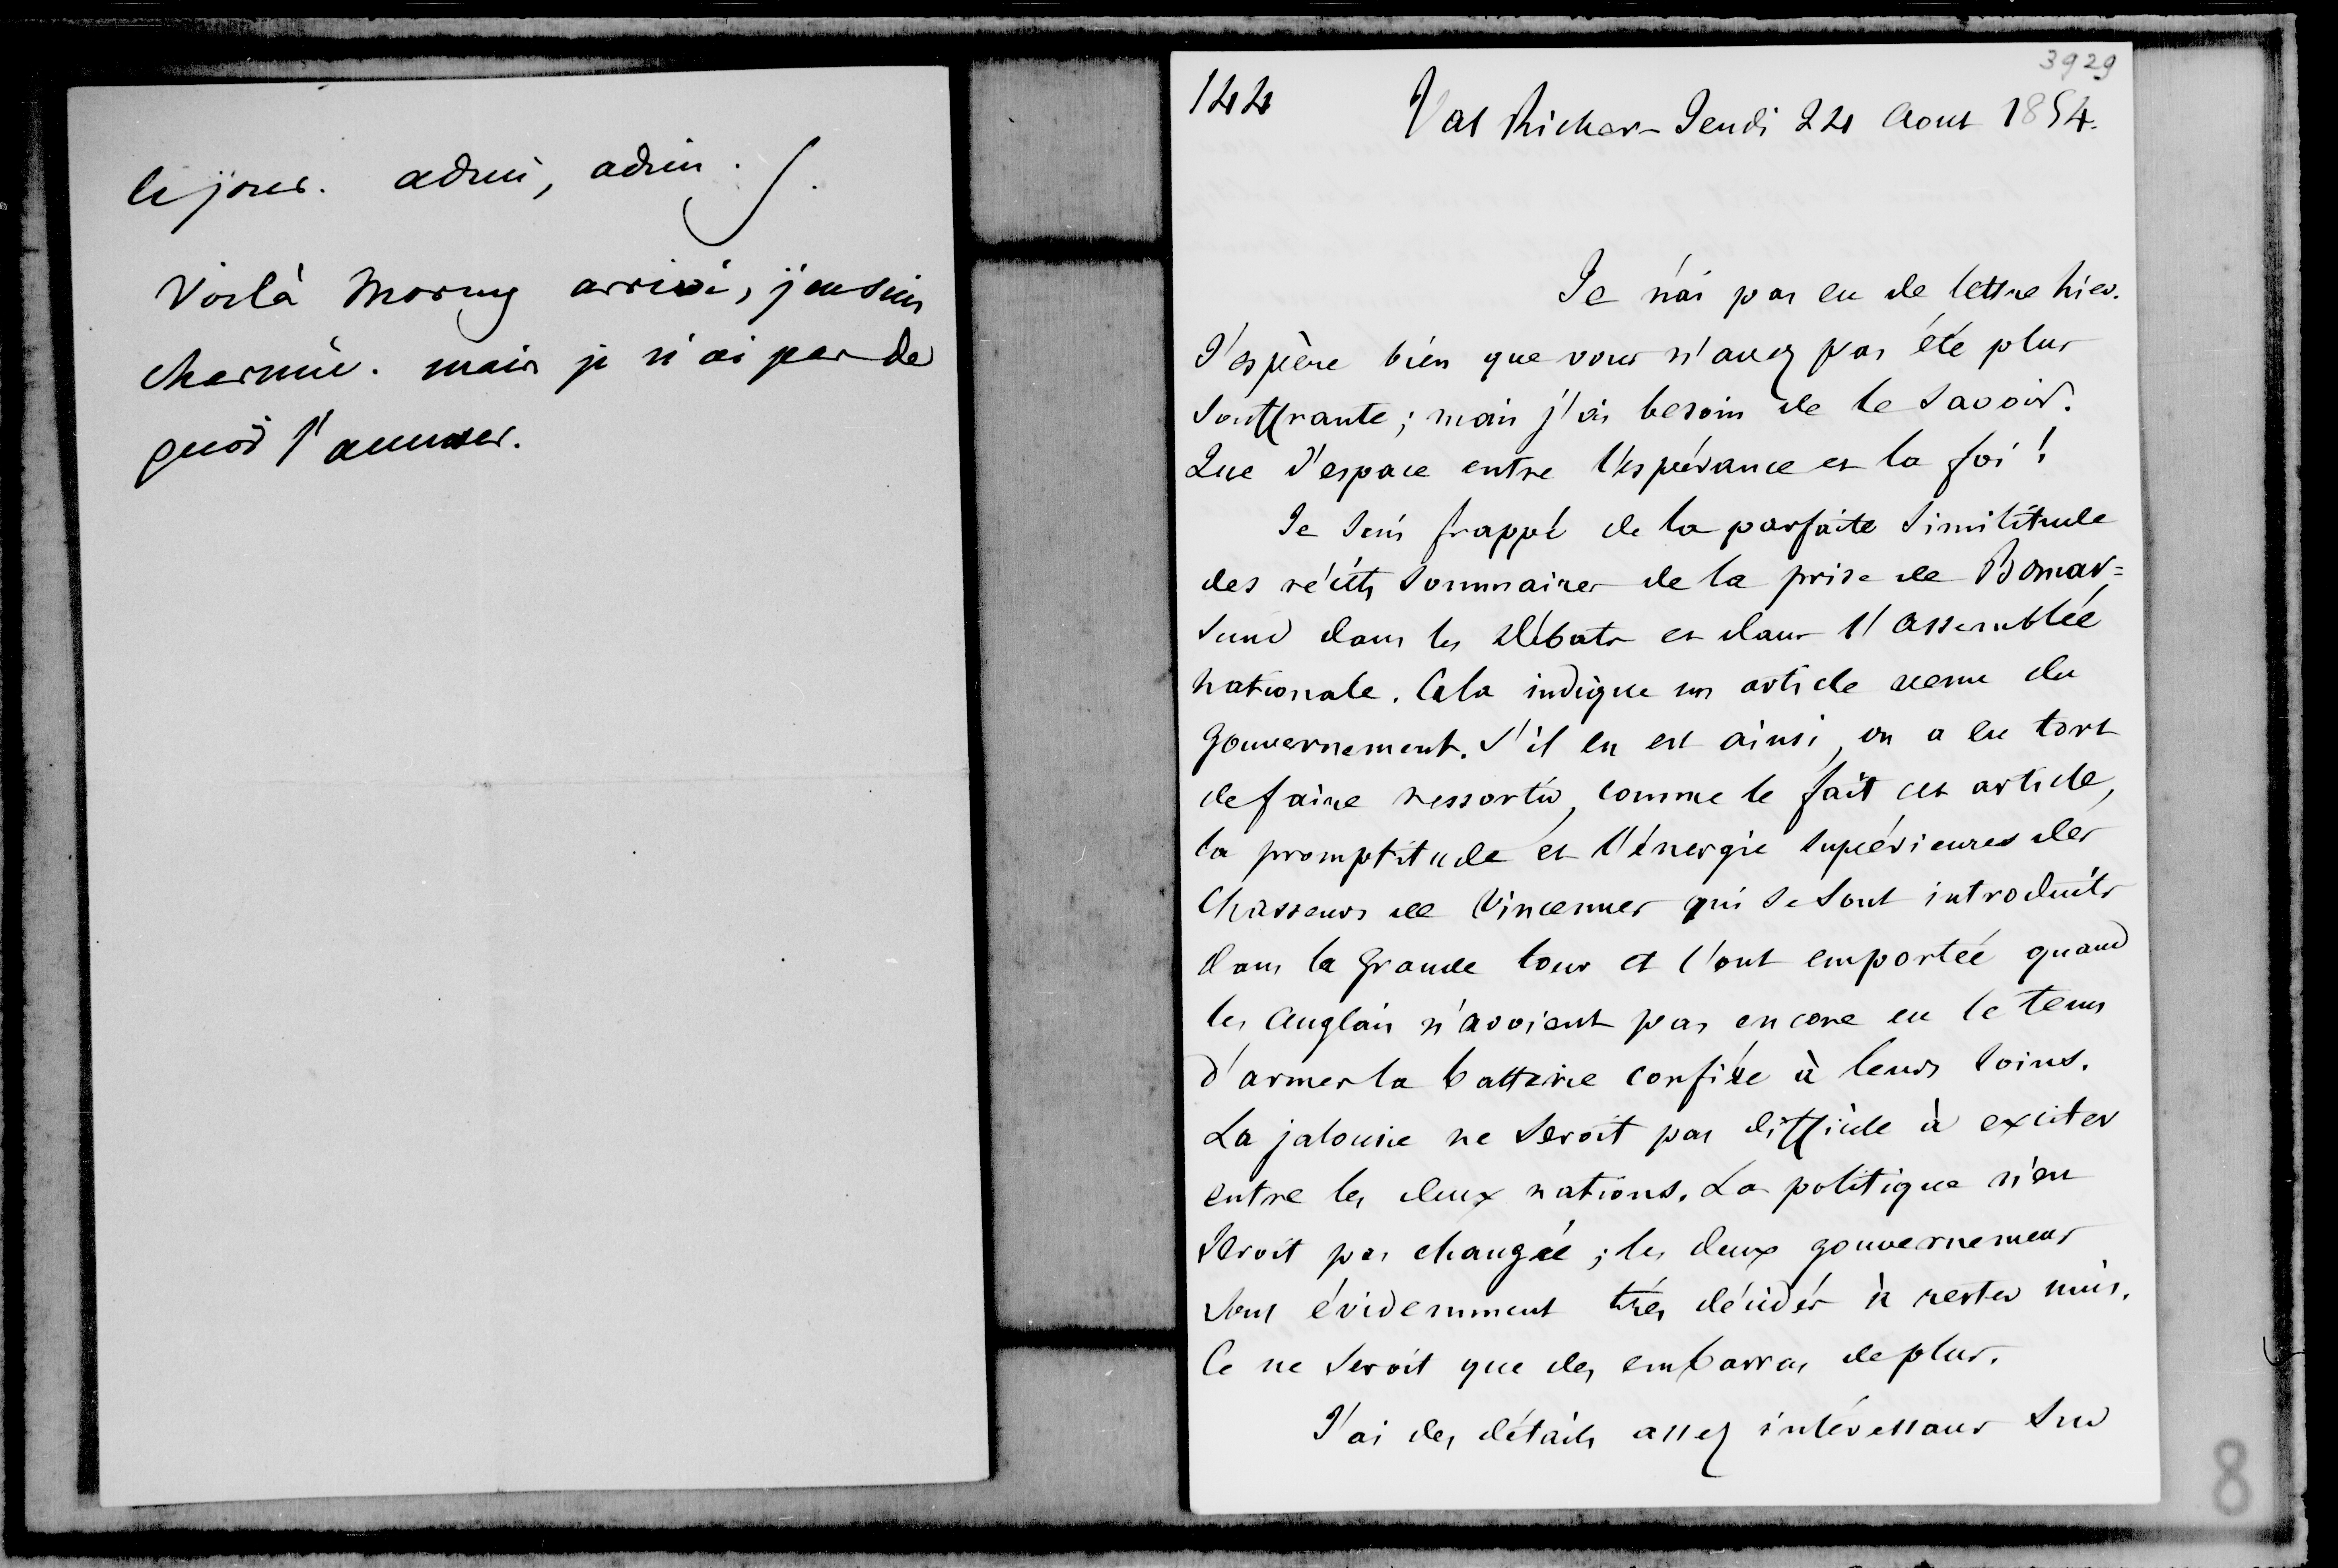 le jour. adieu, adieu.
Voilà Morny arrivé, j'en suis
charmée. mais je n'ai pas de
quoi l'amuser.
3929
144 Val Richer - Jeudi 24 Aout 1854.
Je n'ai pas eu de lettre hier.
J'espère bien que vous n'avez pas été plus
souffrante ; mais j'ai besoin de le savoir.
Que d'espace entre l'espérance et la foi !
Je suis frappé de la parfaite similitude
des récits sommaires de la prise de Bomar=
sund dans les Débats et dans l'assemblée
nationale. Cela indique un article venu du
Gouvernement. S'il en est ainsi, on a eu tort
de faire ressortir, comme le fait cet article,
la promptitude et l'énergie supérieures des
Chasseurs de Vincennes qui se sont introduits
dans la grande tour et l'ont emportée quand
les Anglais n'avoient pas encore eu le tems
d'armer la batterie confiée à leurs soins.
La jalousie ne seroit pas difficile à exciter
entre les deux nations. La politique n'en
seroit pas changée ; les deux gouvernemens
sont évidemment très décidés à rester unis.
Ce ne seroit que des embarras de plus.
J'ai des détails assez intéressans sur
8